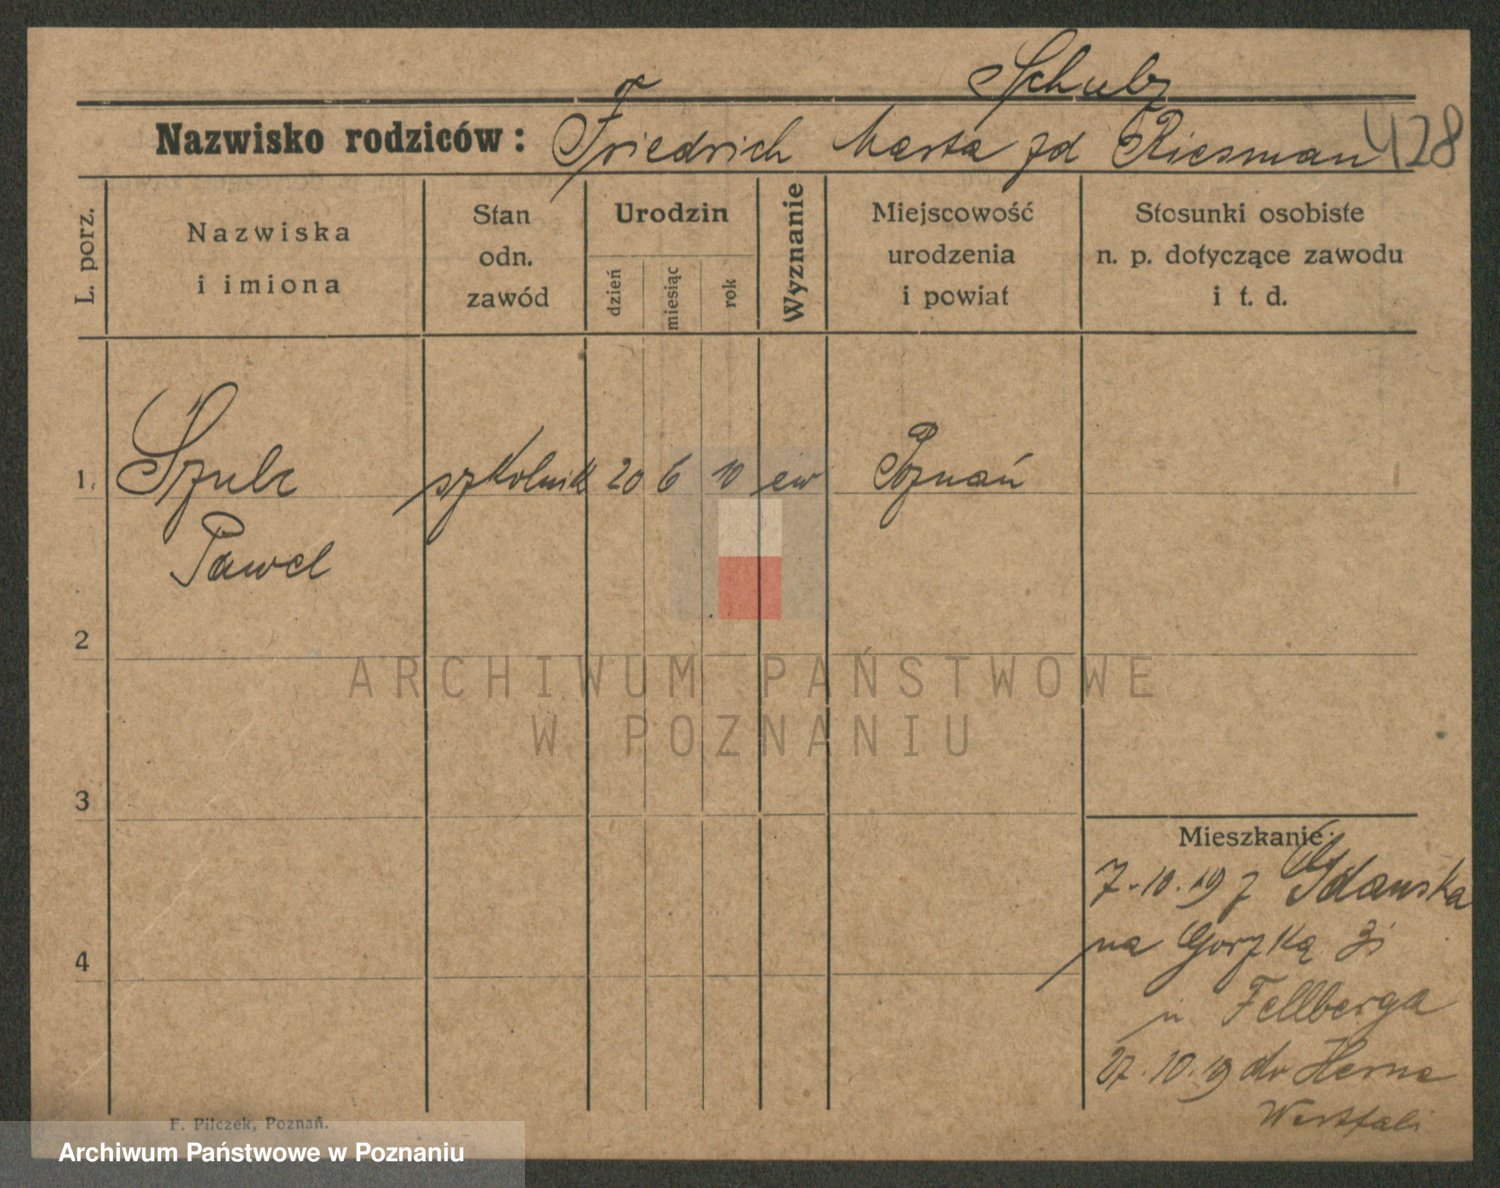 Schulz
Nazwisko rodziców: Friedrich Marta zd Riesman 428
L. porz.
Nazwiska
i imiona
Stan
odn.
zawód
Urodzin
dzień
miesiąc
rok
Wyznanie
Miejscowość
urodzenia
i powiat
Stosunki osobiste
n. p. dotyczące zawodu
i t. d.
1. Szulc szkolnik 20 6 10 ew Poznań
Pawel
2
3
4
Mieszkanie:
7.10.19 z Gdańska
na Gorzką 3
u Fellberga
27.10.19 do Herne
Westfali
ARCHIWUM PAŃSTWOWE
W POZNANIU
F. Pilczek, Poznań.
Archiwum Państwowe w Poznaniu